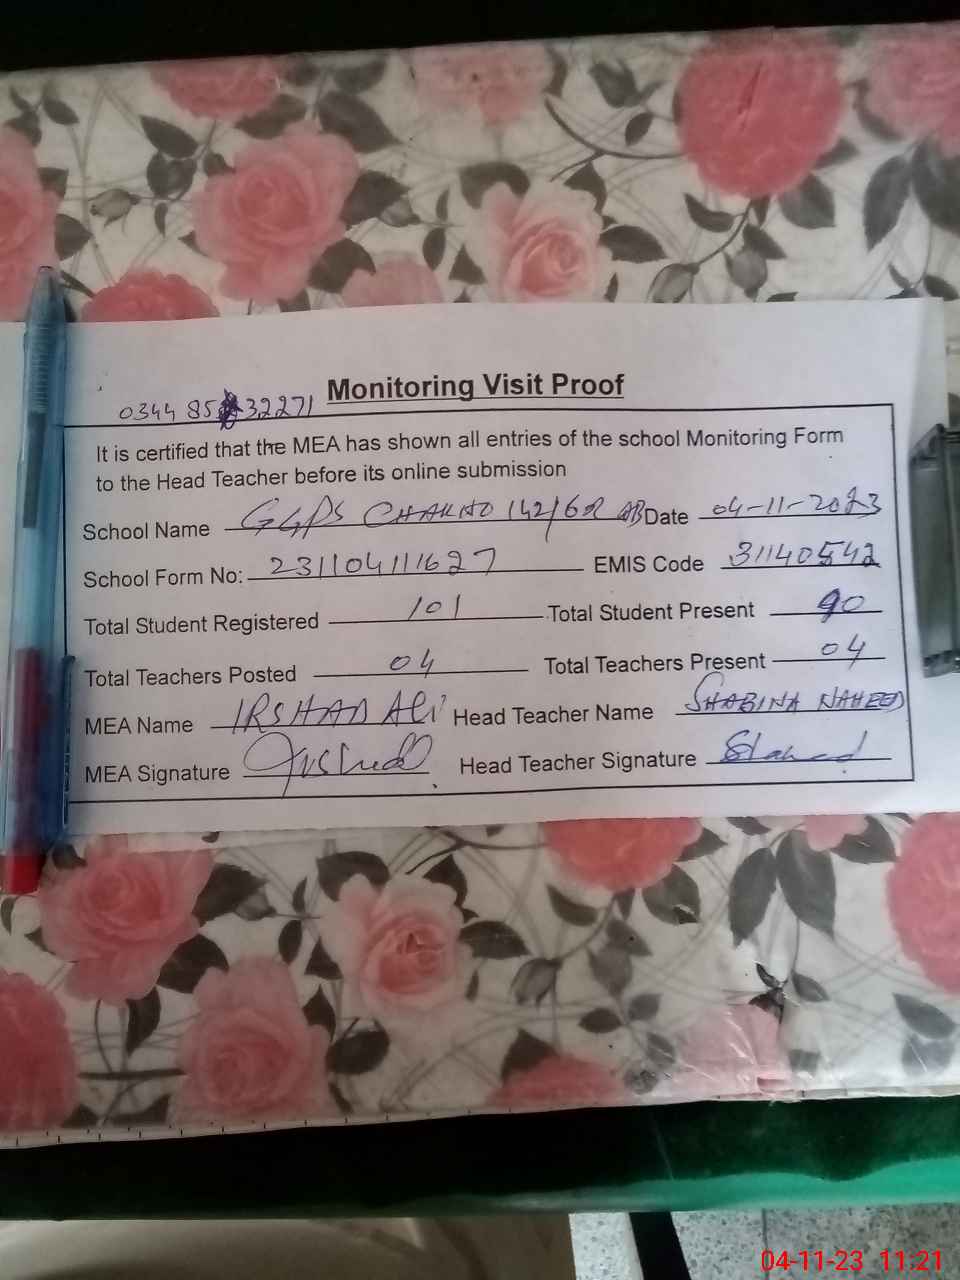 Monitoring Visit Proof
0344 85 32271
It is certified that the MEA has shown all entries of the school Monitoring Form
to the Head Teacher before its online submission
School Name GGPS CHAK NO 142/6R Date 04-11-2023
School Form No: 231104111627 EMIS Code 31140542
Total Student Registered 101 Total Student Present 90
Total Teachers Posted 04 Total Teachers Present 04
MEA Name IRSHAD Ali Head Teacher Name SHABINA NAHEED
MEA Signature Head Teacher Signature
04-11-23 11:21